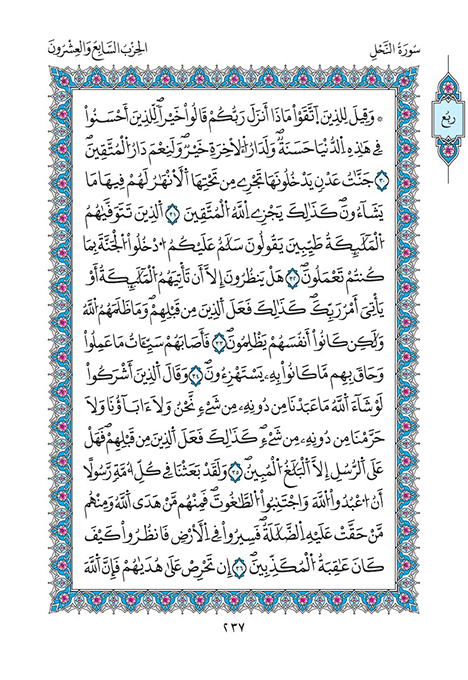 سُورَةُ النَّحْلِ
الحِزْبُ السَّابِعُ وَالعِشْرُونَ
رُبُع
۞ وَقِيلَ لِلذِينَ اَتَّقَوْاْ مَاذَا أَنزَلَ رَبُّكُمْ قَالُواْ خَيْراٗۖ لِّلذِينَ أَحْسَنُواْ
فِے هَٰذِهِ اِلدُّنْيَا حَسَنَةٞۖ وَلَدَارُ اُلَاخِرَةِ خَيْرٞۖ وَلَنِعْمَ دَارُ اُلْمُتَّقِينَۖ
٣٠ جَنَّٰتُ عَدْنٖ يَدْخُلُونَهَا تَجْرِے مِن تَحْتِهَا اَلَانْهَٰرُ لَهُمْ فِيهَا مَا
يَشَآءُونَۖ كَذَٰلِكَ يَجْزِے اِللَّهُ اُلْمُتَّقِينَ ٣١ اَلذِينَ تَتَوَفَّيٰهُمُ
اُلْمَلَٰٓئِكَةُ طَيِّبِينَ يَقُولُونَ سَلَٰمٌ عَلَيْكُمُ اُدْخُلُواْ اُلْجَنَّةَ بِمَا
كُنتُمْ تَعْمَلُونَۖ ٣٢ هَلْ يَنظُرُونَ إِلَّآ أَن تَاتِيَهُمُ اُلْمَلَٰٓئِكَةُ أَوْ
يَاتِيَ أَمْرُ رَبِّكَۖ كَذَٰلِكَ فَعَلَ اَلذِينَ مِن قَبْلِهِمْۖ وَمَا ظَلَمَهُمُ اُللَّهُ
وَلَٰكِن كَانُوٓاْ أَنفُسَهُمْ يَظْلِمُونَۖ ٣٣ فَأَصَابَهُمْ سَيِّـَٔاتُ مَا عَمِلُواْ
وَحَاقَ بِهِم مَّا كَانُواْ بِهِۦ يَسْتَهْزِءُونَۖ ٣٤ وَقَالَ اَلذِينَ أَشْرَكُواْ
لَوْ شَآءَ اَللَّهُ مَا عَبَدْنَا مِن دُونِهِۦ مِن شَےْءٖ نَّحْنُ وَلَآ ءَابَآؤُنَا وَلَا
حَرَّمْنَا مِن دُونِهِۦ مِن شَےْءٖۖ كَذَٰلِكَ فَعَلَ اَلذِينَ مِن قَبْلِهِمْۖ فَهَلْ
عَلَى اَلرُّسُلِ إِلَّا اَلْبَلَٰغُ اُلْمُبِينُۖ ٣٥ وَلَقَدْ بَعَثْنَا فِے كُلِّ أُمَّةٖ رَّسُولاً
اَنُ اُعْبُدُواْ اُللَّهَ وَاجْتَنِبُواْ اُلطَّٰغُوتَۖ فَمِنْهُم مَّنْ هَدَى اَللَّهُ وَمِنْهُم
مَّنْ حَقَّتْ عَلَيْهِ اِلضَّلَٰلَةُۖ فَسِيرُواْ فِے اِلَارْضِ فَانظُرُواْ كَيْفَ
كَانَ عَٰقِبَةُ اُلْمُكَذِّبِينَۖ ٣٦ إِن تَحْرِصْ عَلَىٰ هُدَيٰهُمْ فَإِنَّ اَللَّهَ
٢٣٧